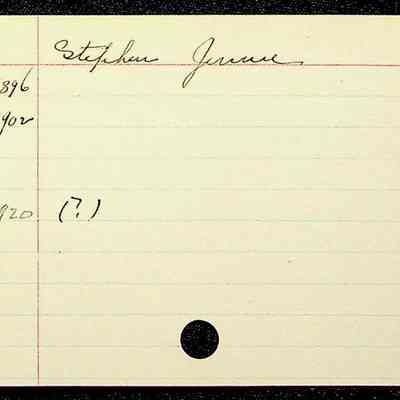 Stephen Jennie
896
902
920 (?)